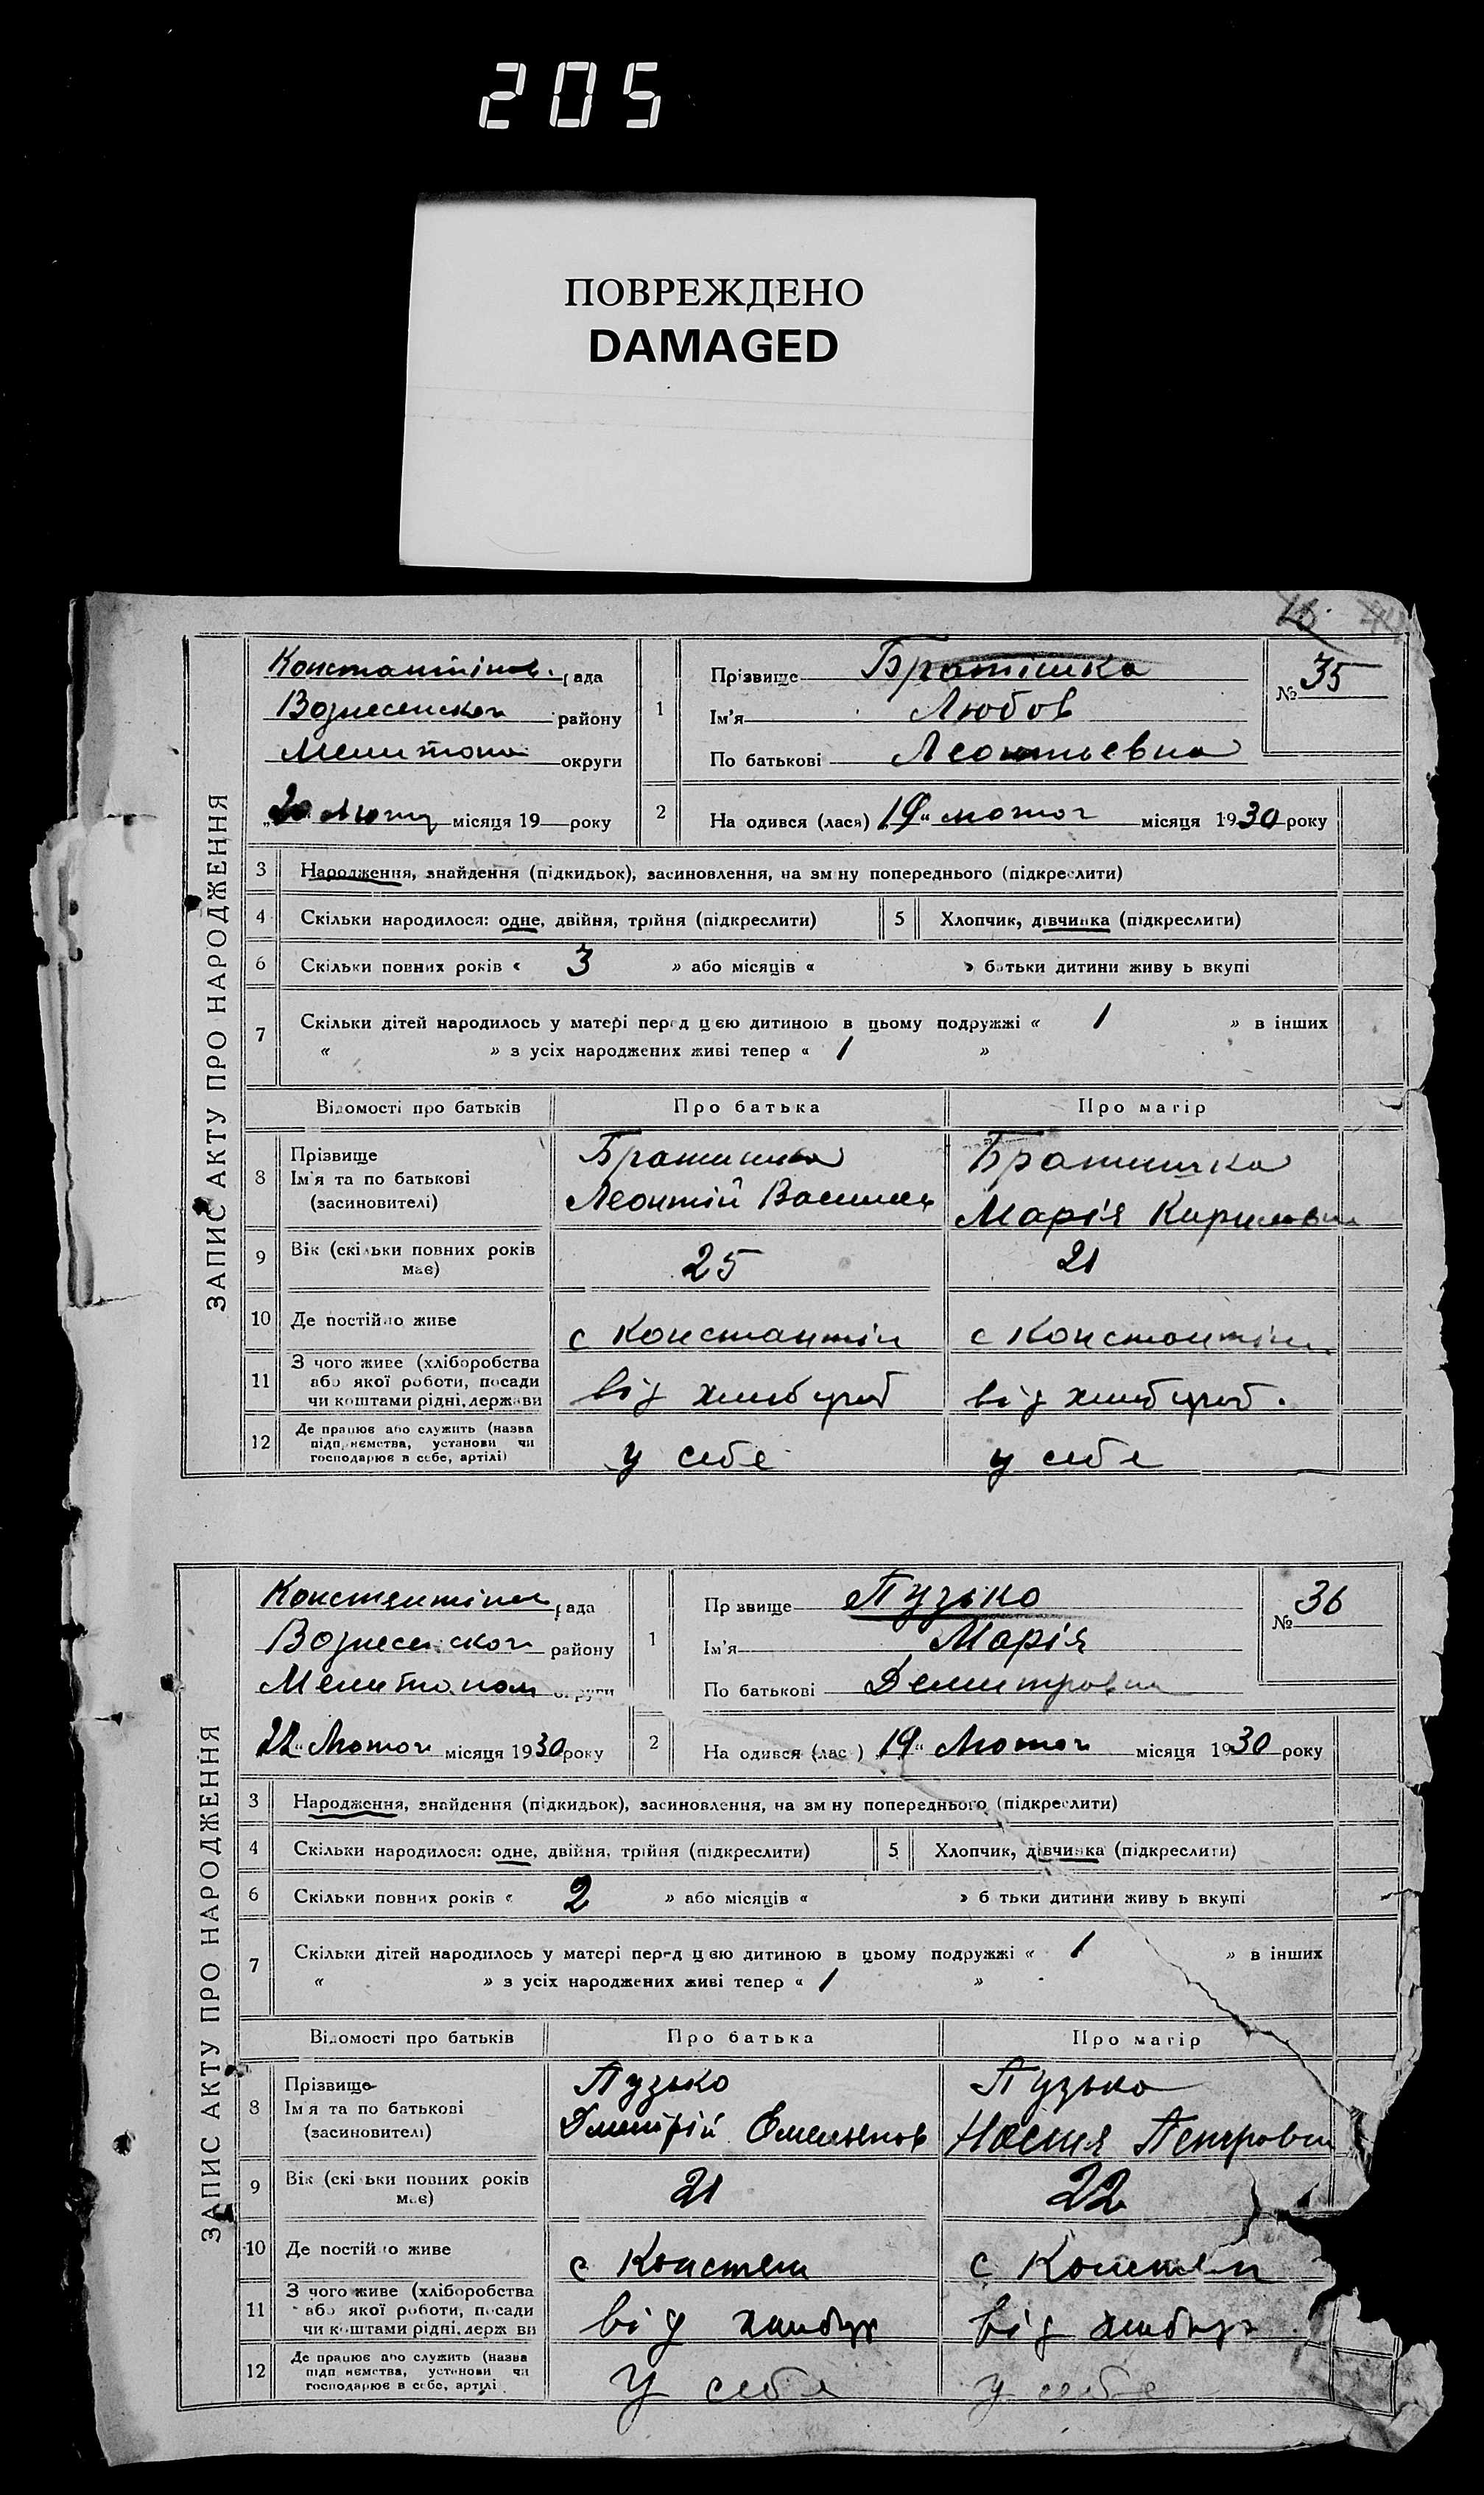 205
ПОВРЕЖДЕНО
DAMAGED
ЗАПИС АКТУ ПРО НАРОДЖЕННЯ
Константінов. рада
Вознесенског району
округи
20 місяця 19 року
1
Прізвище Братішка
Ім'я Любов
По батькові Леонтьевна
№ 35
2
На одився (лася) 19 " лютог місяця 1930 року
3 Народження, знайдення (підкидьок), засиновлення, на зм ну попереднього (підкреслити)
4 Скільки народилося: одне, двійня, трійня (підкреслити) 5 Хлопчик, дівчинка (підкреслити)
6 Скільки повних років « 3 » або місяців « » батьки дитини живу ь вкупі
7 Скільки дітей народилось у матері перед цією дитиною в цьому подружжі « 1 » в інших
« » з усіх народжених живі тепер « 1 »
Відомості про батьків Про батька Про матір
8 Прізвище Братишка Братишка
Ім'я та по батькові Леонтій Василев Марія Кириловна
(засиновителі)
9 Вік (скільки повних років має) 25 21
10 Де постійно живе с Константін с Константін
11 З чого живе (хліборобства
або якої роботи, посади від хлибороб від хлибороб.
чи коштами рідні, держави
12 Де працює або служить (назва
підп иємства, установи чи у себе у себе
господарює в себе, артілі)
ЗАПИС АКТУ ПРО НАРОДЖЕННЯ
Константінов рада
Вознесенског району
Мелитопол округи
22 " Лютог місяця 1930 року
1
Пр звище Пузько
Ім'я Марія
По батькові Демитровна
№ 36
2
На одився (лас ) 19 " Лютог місяця 1930 року
3 Народження, знайдення (підкидьок), засиновлення, на зм ну попереднього (підкреслити)
4 Скільки народилося: одне, двійня, трійня (підкреслити) 5 Хлопчик, дівчинка (підкреслити)
6 Скільки повних років « 2 » або місяців « » б тьки дитини живу ь вкупі
7 Скільки дітей народилось у матері перед цією дитиною в цьому подружжі « 1 » в інших
« » з усіх народжених живі тепер « 1 »
Відомості про батьків Про батька Про матір
8 Прізвище Пузько Пузько
Ім'я та по батькові Дмитрій Омельянов Настя Петровн
(засиновителі)
9 Вік (скі ьки повних років має) 21 22
10 Де постій о живе с Констан с Констан
11 З чого живе (хліборобства
або якої роботи, посади від від
чи коштами рідні, держ ви
12 Де працює або служить (назва
підп иємства, установи чи у себе у себе
господарює в себе, артілі